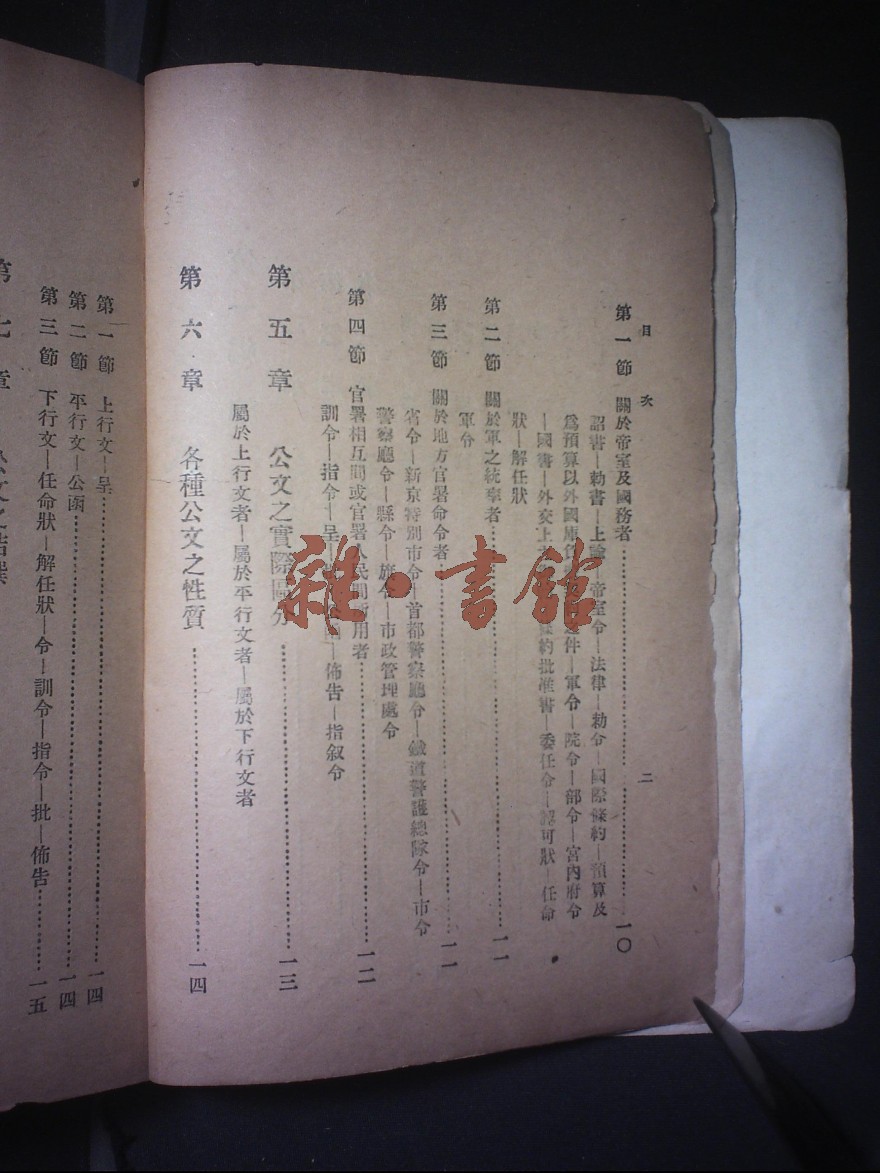 目次 二
第一節 關於帝室及國務者 一〇
詔書—勅書—上諭—帝室令—法律—勅令—國際條約—預算及
爲預算以外國庫 件—軍令—院令—部令—宮內府令
—國書—外交上 約批准書—委任令—認可狀—任命
狀—解任狀
第二節 關於軍之統率者 一一
軍令
第三節 關於地方官署命令者 一一
省令—新京特別市令—首都警察廳令—鐵道警護總隊令—市令
警察廳令—縣令—旗令—市政管理處令
第四節 官署相互間或官署人民間所用者 一二
訓令—指令—呈 —佈告—指叙令
第五章 公文之實際區分 一三
屬於上行文者—屬於平行文者—屬於下行文者
第六章 各種公文之性質 一四
第一節 上行文—呈 一四
第二節 平行文—公函 一四
第三節 下行文—任命狀—解任狀—令—訓令—指令—批—佈告 一五
雜·書館